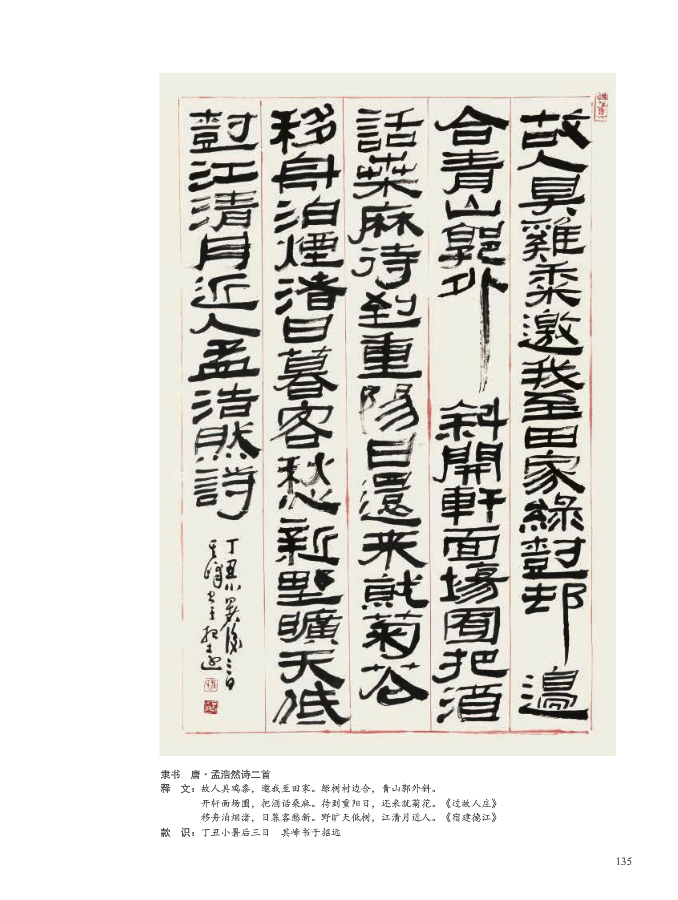 故人具雞黍邀我至田家綠尌邨邊
合青山郭外斜開軒面場圃把酒
話桒麻待到重陽日還来就菊花
移舟泊煙渚日暮客愁新野曠天低
尌江清月近人孟浩然詩
丁丑小暑後三日
其峰书于招远
隶书 唐·孟浩然诗二首
释 文：故人具鸡黍，邀我至田家。绿树村边合，青山郭外斜。
开轩面场圃，把酒话桑麻。待到重阳日，还来就菊花。《过故人庄》
移舟泊烟渚，日暮客愁新。野旷天低树，江清月近人。《宿建德江》
款 识：丁丑小暑后三日 其峰书于招远
135